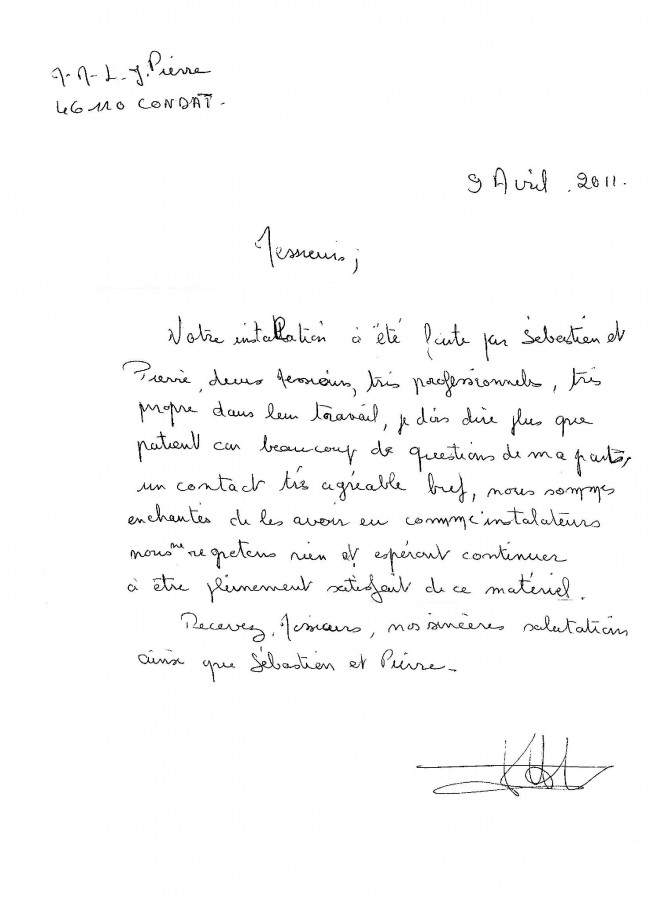 J. Pierre
46110 CONDAT.
9 Avril . 2011.
Messieurs ;
Votre installation à été faite par Sébastien et
Pierre, deux Messieurs, très professionnels, très
propre dans leur travail, je dois dire plus que
patient car beaucoup de questions de ma part,
un contact très agréable bref, nous sommes
enchantés de les avoir eu comme instalateurs
nous ne regretons rien et espérant continuer
à être pleinement satisfait de ce matériel.
Recevez, Messieurs, nos sincères salutations
ainsi que Sébastien et Pierre.